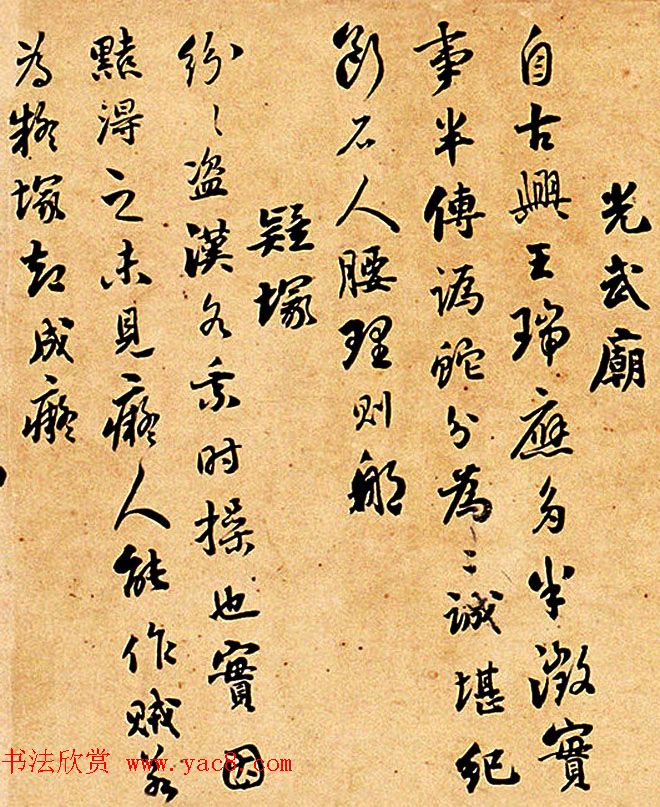 光武廟
自古興王瑞應多半徵實
事半傳譌蛇分為二誠堪紀
斷石人腰理則那
疑塚
紛〻盜漢各乘时操也實因
黠得之未見癡人能作賊若
為疑塚却成癡
书法欣赏 www.yac8.com